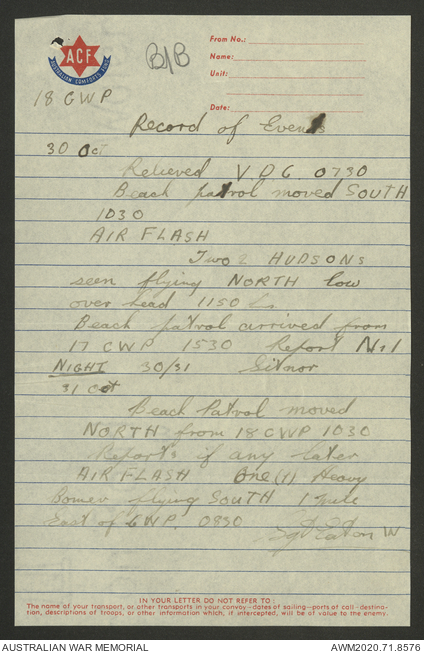 ACF
AUSTRALIAN COMFORTS FUND
B/B
From No.:
Name:
Unit:
Date:
18 CWP
Record of Events
30 Oct
Relieved V.D.G. 0730
Beach patrol moved SOUTH
1030
AIR FLASH
Two 2 HUDSONs
seen flying NORTH low
over head 1150
Beach patrol arrived from
17 CWP 1530 Report No 1
NIGHT 30/31 Sitnor
31 Oct
Beach Patrol moved
NORTH from 18 CWP 1030
Reports if any later
AIR FLASH One (1) Heavy
Bomer flying SOUTH 1 mile
East of CWP. 0850
Sgt Eaton W
IN YOUR LETTER DO NOT REFER TO:
The name of your transport, or other transports in your convoy—dates of sailing—ports of call—destina-
tion, descriptions of troops, or other information which, if intercepted, will be of value to the enemy.
AUSTRALIAN WAR MEMORIAL
AWM2020.71.8576